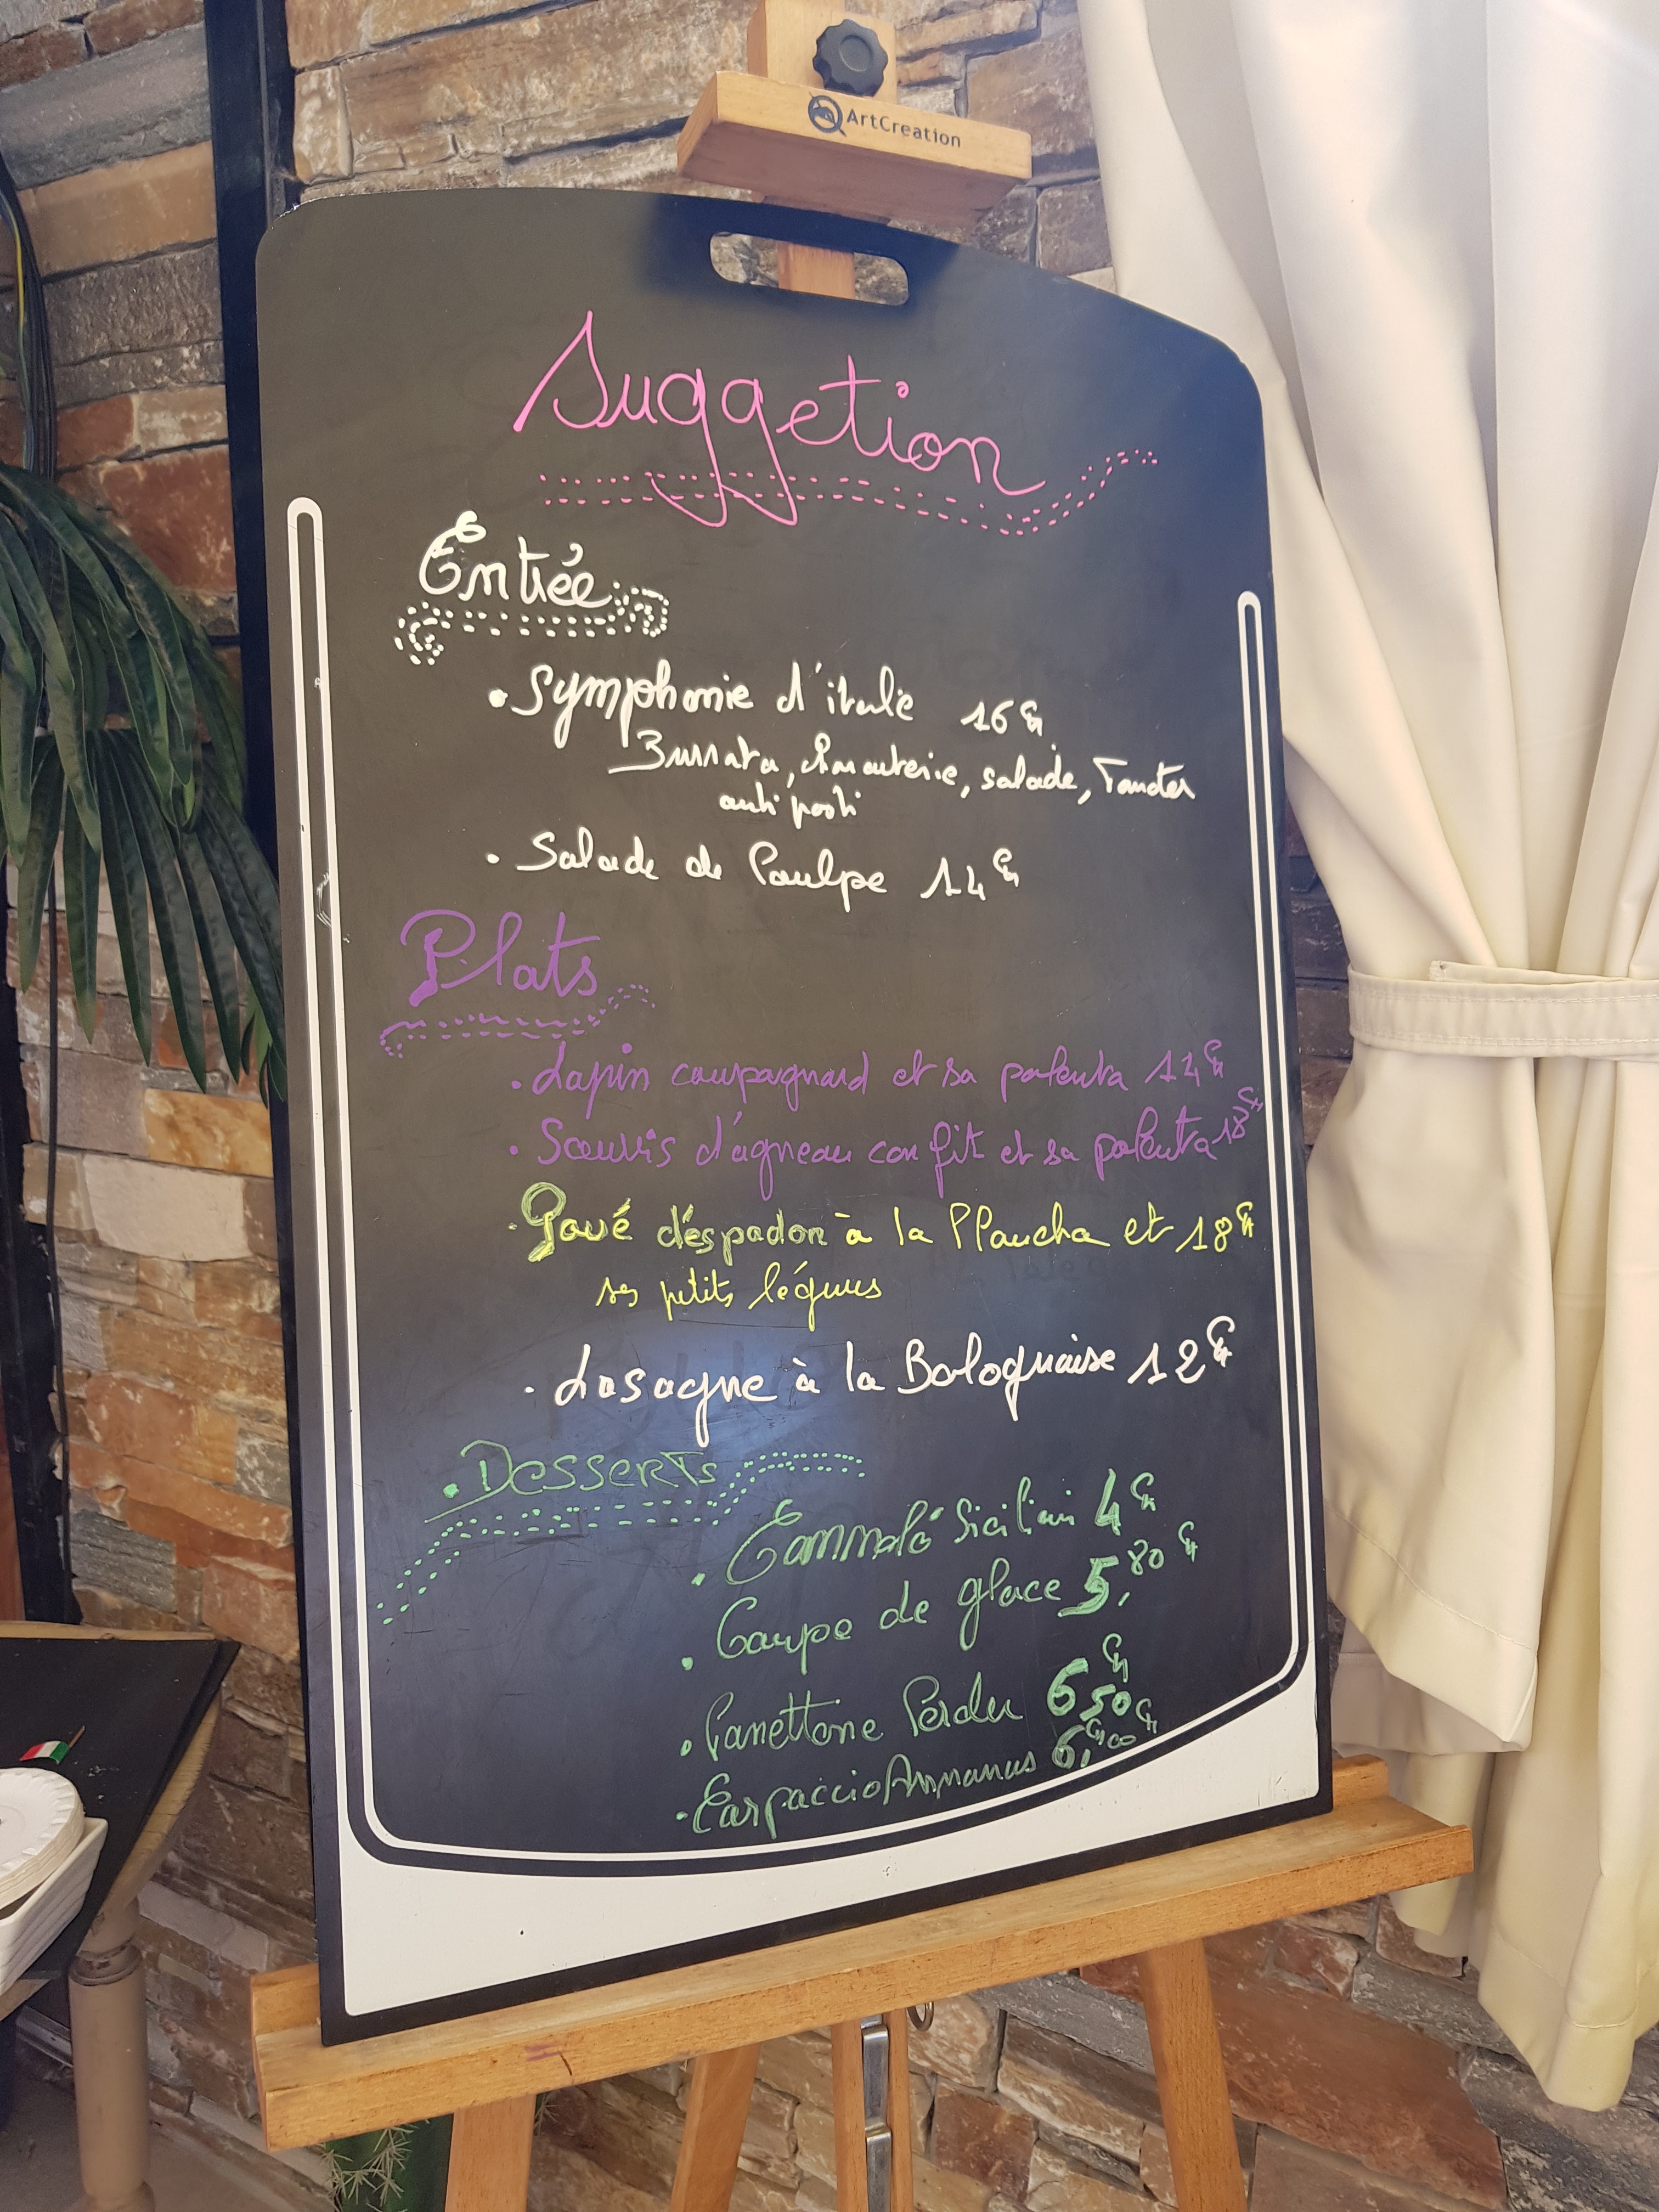 ArtCreation
Suggetion
Entrée
• Symphonie d'italie 16€
Burrata, charcuterie, salade, Tomates
anti pasti
• Salade de Poulpe 14€
Plats
• Lapin campagnard et sa polenta 14€
• Souris d'agneau confit et sa polenta 18€
• Pavé d'éspadon à la Plancha et 18€
ses petits légumes
• Lasagne à la Bolognaise 12€
• Desserts
• Cannolo Sicilien 4€
• Coupe de glace 5,80€
• Panettone Perdu 6,50€
• Carpaccio Annanas 6,00€